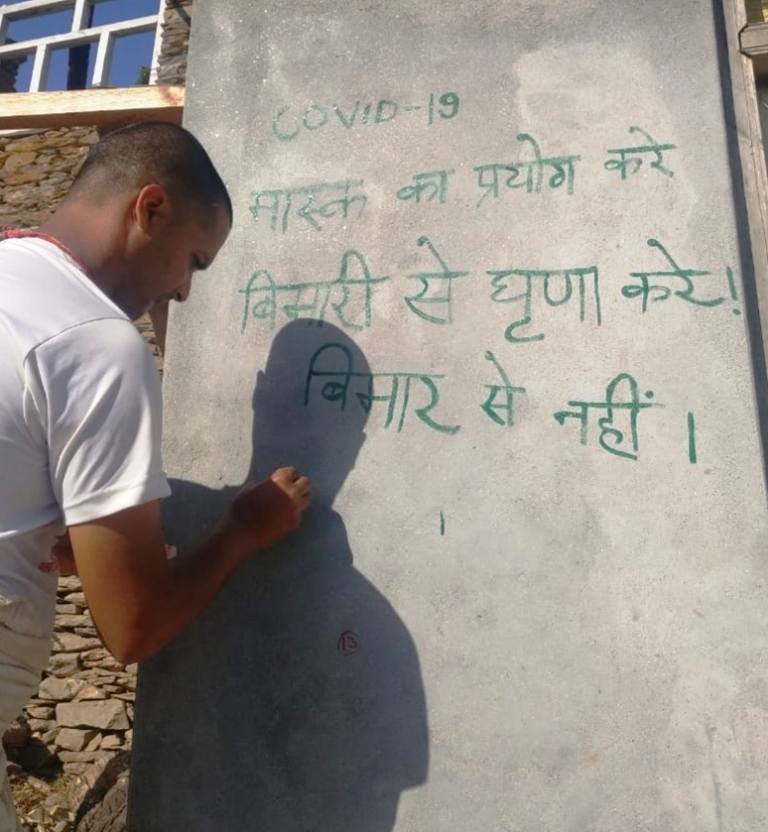 COVID-19
मास्क का प्रयोग करे
बिमारी से घृणा करे!
बिमार से नहीं ।
13